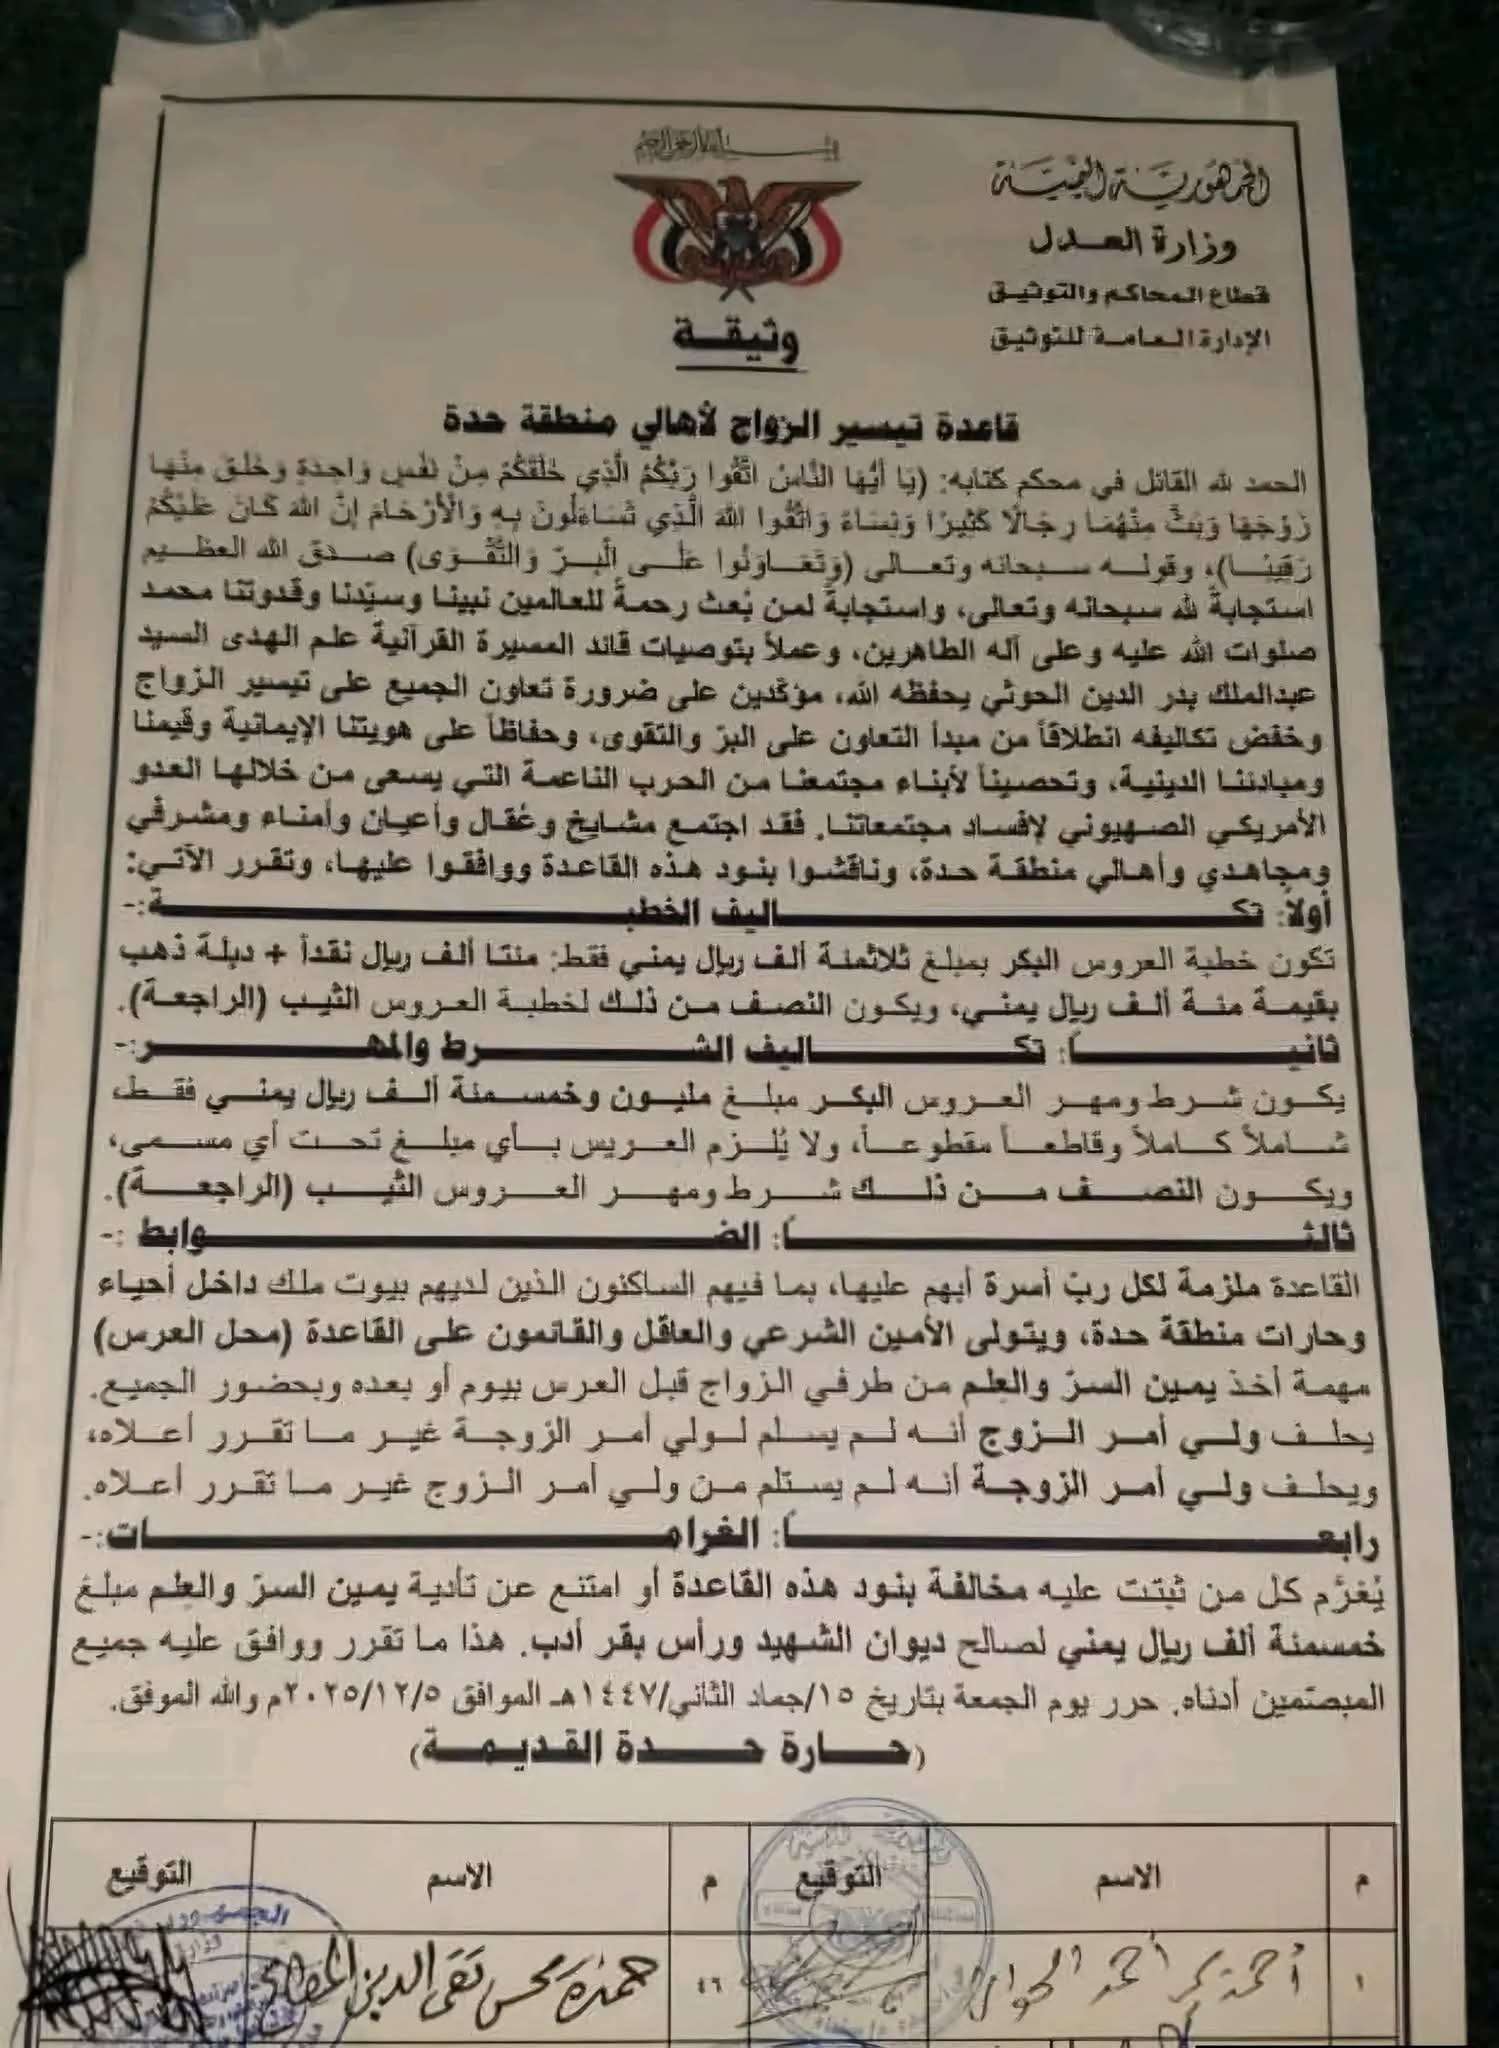 بسم الله الرحمن الرحيم
الجمهورية اليمنية
وزارة العدل
قطاع المحاكم والتوثيق
الإدارة العامة للتوثيق
وثيقة
قاعدة تيسير الزواج لأهالي منطقة حدة
الحمد لله القائل في محكم كتابه: (يَا أَيُّهَا النَّاسُ اتَّقُوا رَبَّكُمُ الَّذِي خَلَقَكُمْ مِنْ نَفْسٍ وَاحِدَةٍ وَخَلَقَ مِنْهَا
زَوْجَهَا وَبَثَّ مِنْهُمَا رِجَالًا كَثِيرًا وَنِسَاءً وَاتَّقُوا اللهَ الَّذِي تَسَاءَلُونَ بِهِ وَالْأَرْحَامَ إِنَّ اللهَ كَانَ عَلَيْكُمْ
رَقِيبًا)، وقوله سبحانه وتعالى (وَتَعَاوَنُوا عَلَى الْبِرِّ وَالتَّقْوَى) صدق الله العظيم
استجابةً لله سبحانه وتعالى، واستجابةً لمن بُعث رحمةً للعالمين نبينا وسيّدنا وقدوتنا محمد
صلوات الله عليه وعلى آله الطاهرين، وعملاً بتوصيات قائد المسيرة القرآنية علم الهدى السيد
عبدالملك بدر الدين الحوثي يحفظه الله، مؤكّدين على ضرورة تعاون الجميع على تيسير الزواج
وخفض تكاليفه انطلاقاً من مبدأ التعاون على البرّ والتقوى، وحفاظاً على هويتنا الإيمانية وقيمنا
ومبادئنا الدينية، وتحصيناً لأبناء مجتمعنا من الحرب الناعمة التي يسعى من خلالها العدو
الأمريكي الصهيوني لإفساد مجتمعاتنا. فقد اجتمع مشايخ وعُقال وأعيان وأمناء ومشرفي
ومجاهدي وأهالي منطقة حدة، وناقشوا بنود هذه القاعدة ووافقوا عليها، وتقرر الآتي:
أولاً: تكاليف الخطبة:-
تكون خطبة العروس البكر بمبلغ ثلاثمئة ألف ريال يمني فقط: مئتا ألف ريال نقداً + دبلة ذهب
بقيمة مئة ألف ريال يمني، ويكون النصف من ذلك لخطبة العروس الثيب (الراجعة).
ثانياً: تكاليف الشرط والمهر:-
يكون شرط ومهر العروس البكر مبلغ مليون وخمسمئة ألف ريال يمني فقط،
شاملاً كاملاً وقاطعاً مقطوعاً، ولا يُلزم العريس بأي مبلغ تحت أي مسمى،
ويكون النصف من ذلك شرط ومهر العروس الثيب (الراجعة).
ثالثاً: الضوابط:-
القاعدة ملزمة لكل ربّ أسرة أبهم عليها، بما فيهم الساكنون الذين لديهم بيوت ملك داخل أحياء
وحارات منطقة حدة، ويتولى الأمين الشرعي والعاقل والقائمون على القاعدة (محل العرس)
مهمة أخذ يمين السرّ والعِلم من طرفي الزواج قبل العرس بيوم أو بعده وبحضور الجميع.
يحلف ولي أمر الزوج أنه لم يسلم لولي أمر الزوجة غير ما تقرر أعلاه،
ويحلف ولي أمر الزوجة أنه لم يستلم من ولي أمر الزوج غير ما تقرر أعلاه.
رابعاً: الغرامات:-
يُغرّم كل من ثبتت عليه مخالفة بنود هذه القاعدة أو امتنع عن تأدية يمين السرّ والعِلم مبلغ
خمسمئة ألف ريال يمني لصالح ديوان الشهيد ورأس بقر أدب. هذا ما تقرر ووافق عليه جميع
المبصّمين أدناه. حرر يوم الجمعة بتاريخ ١٥/جماد الثاني/١٤٤٧هـ الموافق ٢٠٢٥/١٢/٥م والله الموفق.
(حارة حدة القديمة)
م الاسم التوقيع م الاسم التوقيع
١ أحمد أحمد ٤٦ حمزة محسن تقي الدين